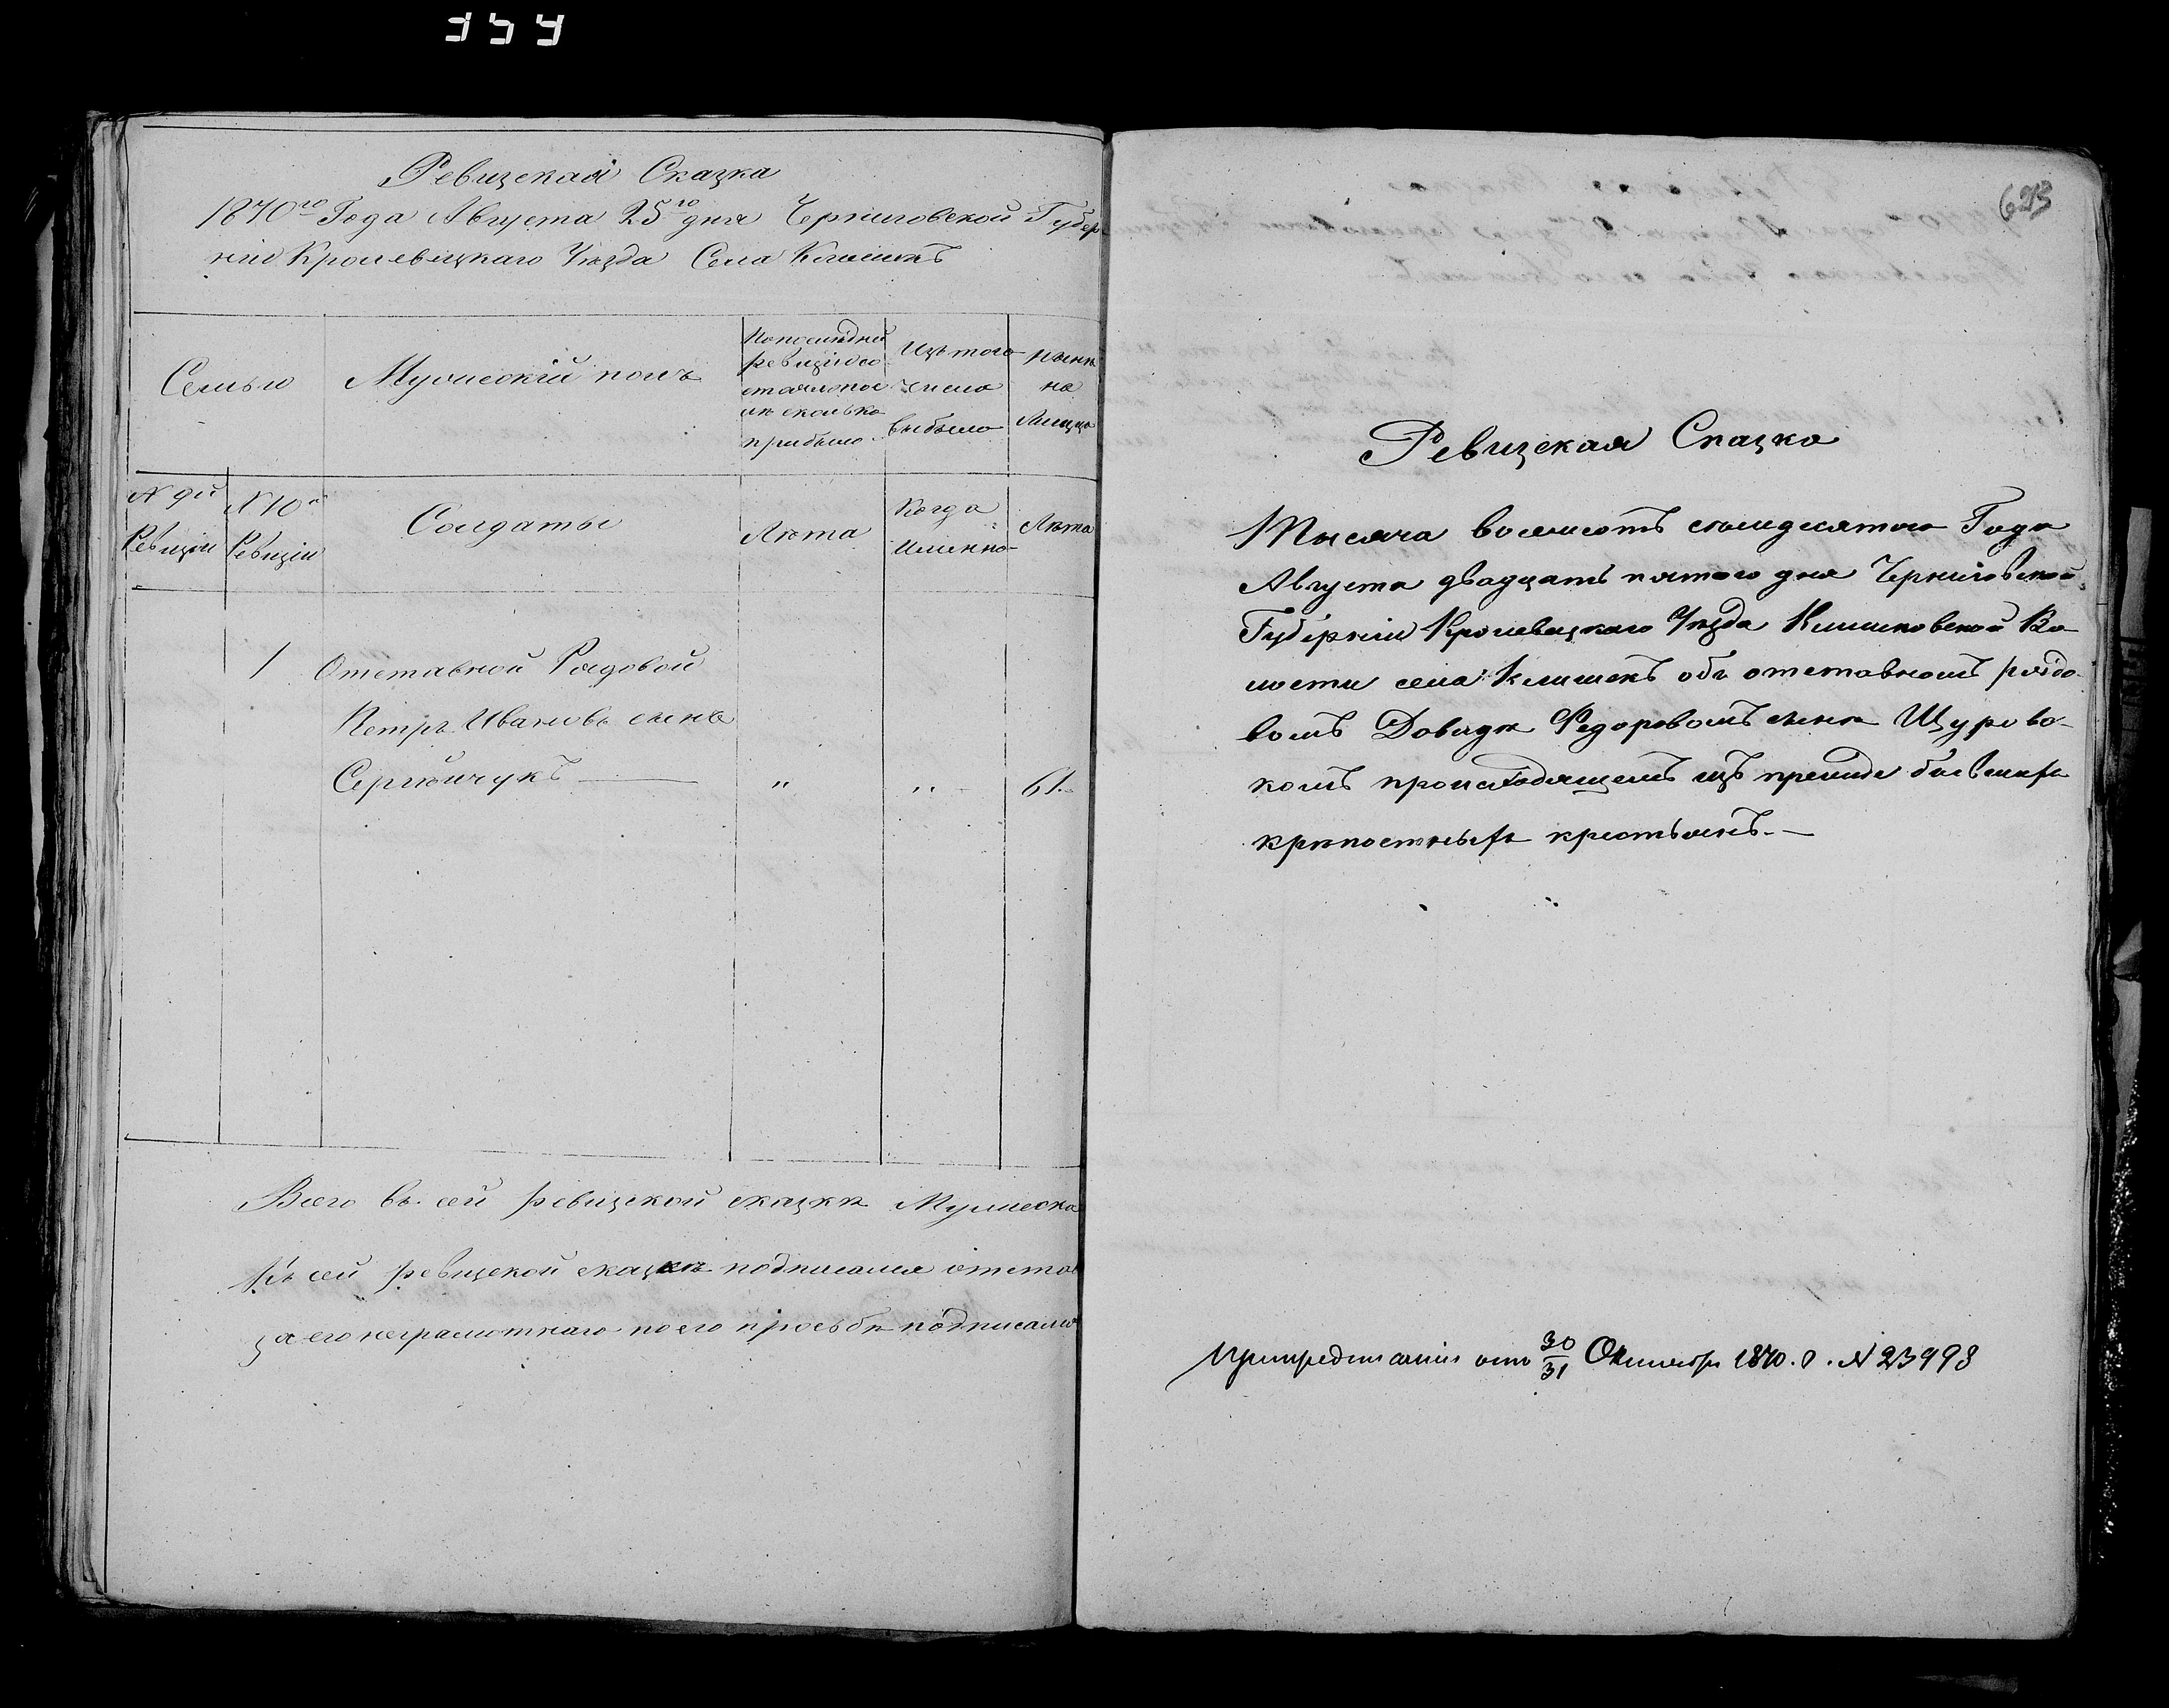 354
Ревизская Сказка
1870го Года Августа 25го дня Черниговской Губер
нiи Кролевецкаго Уѣзда Села Клишекъ
Семьи
Мужескiй полъ
По последней
ревизiи со
стояло и пос
лѣ сколько
прибыло
Изъ того
числа
выбыло
нынѣ
на
лицо
N 9й
Ревизiи
N 10й
Ревизiи
Солдаты
Лѣта
Когда
именно
Лѣта
1 Отставной Рядовой
Петръ Ивановъ сынъ
Сергѣйчукъ — „ „ 61.
Всего въ сей ревизской сказкѣ Мужеска
Къ сей ревизской сказкѣ подписался отстав
за его неграмотнаго по его прозьбѣ подписалъ
623
Ревизская Сказка
Тысяча восемсотъ семидесятаго Года
Августа двадцать пятого дня Черниговской
Губернiи Кролевецкаго Уѣзда Клишковской Во
лости села Клишекъ объ отставномъ рядо
вомъ Довидѣ Федоровомъ сынѣ Щурово-
комъ происходящемъ изъ прежде бывшихъ
крѣпостныхъ крестьянъ.—
При предписанiи отъ 30/31 Октября 1870. г. N 23998